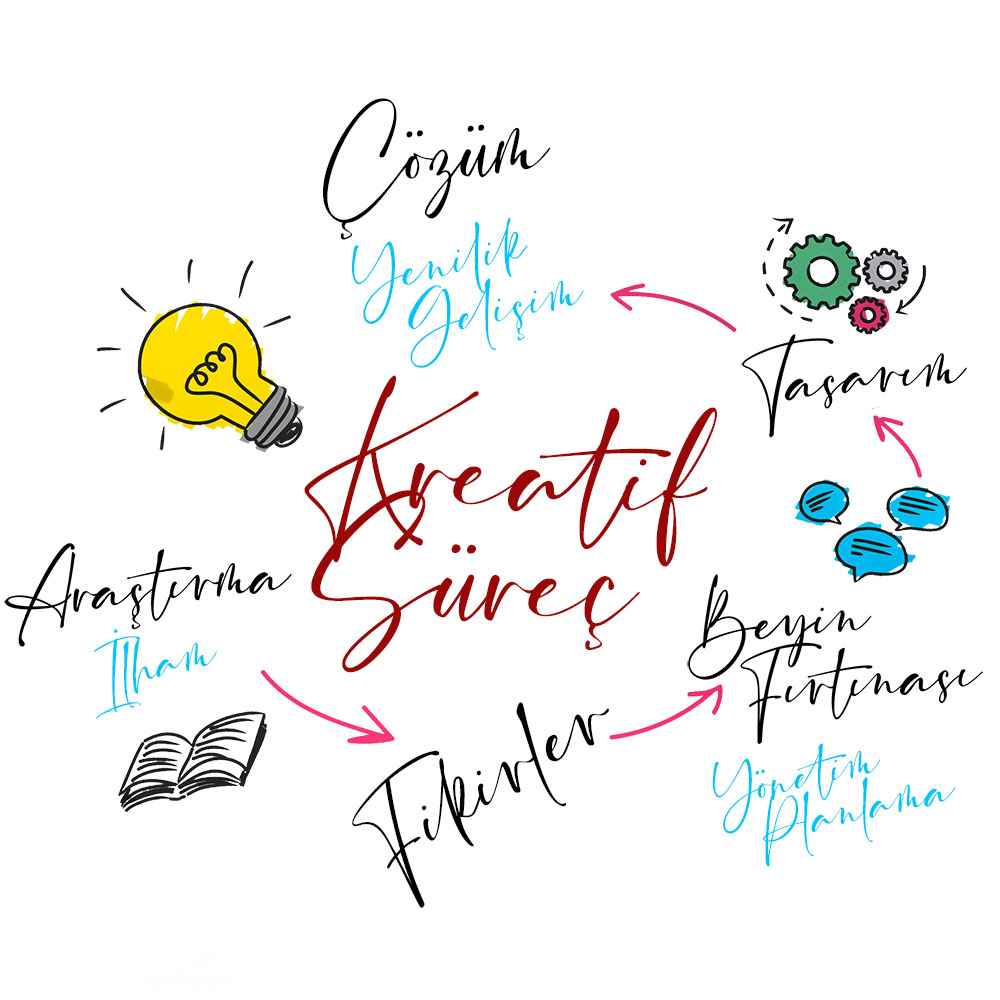 Çözüm
Yenilik
Gelişim
Tasarım
Kreatif
Süreç
Araştırma
İlham
Beyin
Fırtınası
Fikirler
Yönetim
Planlama